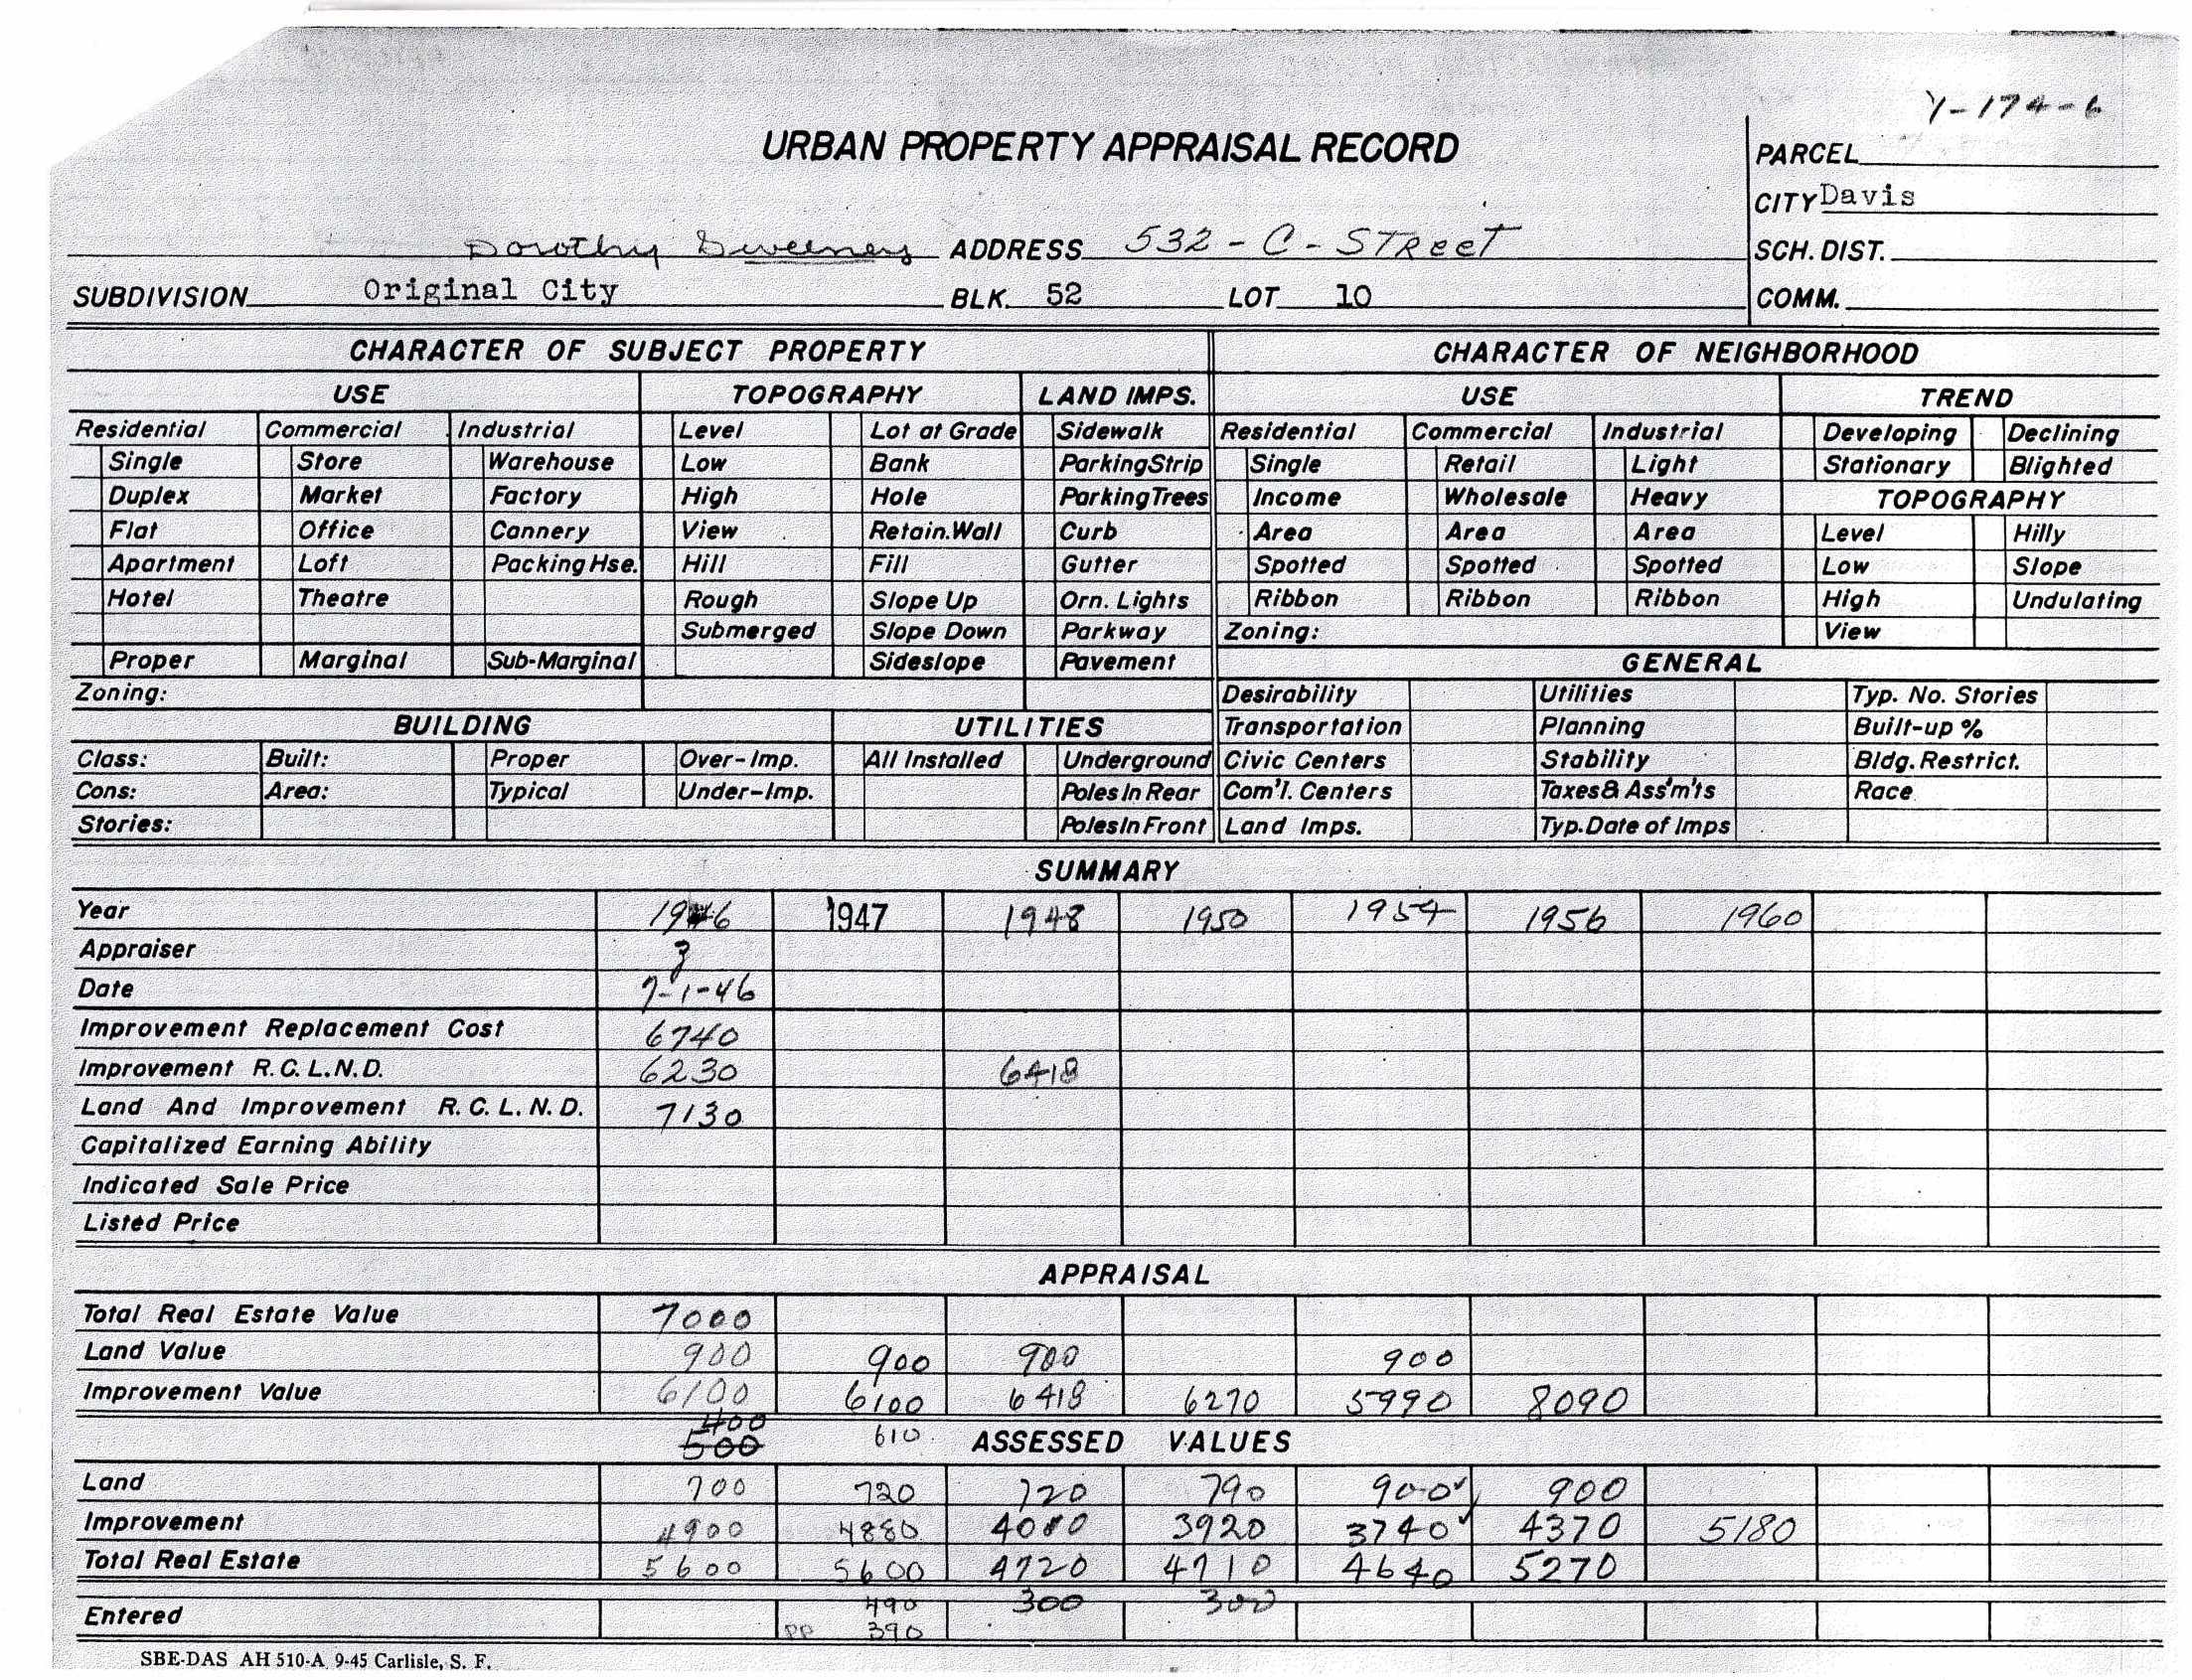 Y-174-6
URBAN PROPERTY APPRAISAL RECORD
PARCEL
CITY Davis
Dorothy Sweeney ADDRESS 532 - C - STReeT
SCH. DIST.
SUBDIVISION Original City BLK. 52 LOT 10
COMM.
CHARACTER OF SUBJECT PROPERTY CHARACTER OF NEIGHBORHOOD
USE TOPOGRAPHY LAND IMPS. USE TREND
Residential Commercial Industrial Level Lot at Grade Sidewalk Residential Commercial Industrial Developing Declining
Single Store Warehouse Low Bank Parking Strip Single Retail Light Stationary Blighted
Duplex Market Factory High Hole Parking Trees Income Wholesale Heavy TOPOGRAPHY
Flat Office Cannery View Retain. Wall Curb Area Area Area Level Hilly
Apartment Loft Packing Hse. Hill Fill Gutter Spotted Spotted Spotted Low Slope
Hotel Theatre Rough Slope Up Orn. Lights Ribbon Ribbon Ribbon High Undulating
Submerged Slope Down Parkway Zoning: View
Proper Marginal Sub-Marginal Sideslope Pavement GENERAL
Zoning: Desirability Utilities Typ. No. Stories
BUILDING UTILITIES Transportation Planning Built-up %
Class: Built: Proper Over-Imp. All Installed Underground Civic Centers Stability Bldg. Restrict.
Cons: Area: Typical Under-Imp. Poles In Rear Com'l. Centers Taxes & Ass'm'ts Race
Stories: Poles In Front Land Imps. Typ. Date of Imps
SUMMARY
Year 1946 1947 1948 1950 1954 1956 1960
Appraiser
Date 7-1-46
Improvement Replacement Cost 6740
Improvement R.C.L.N.D. 6230 6418
Land And Improvement R.C.L.N.D. 7130
Capitalized Earning Ability
Indicated Sale Price
Listed Price
APPRAISAL
Total Real Estate Value 7000
Land Value 900 900 900 900
Improvement Value 6100 6100 6418 6270 5990 8090
400
500 610 ASSESSED VALUES
Land 700 720 720 790 900 900
Improvement 4900 4880 4000 3920 3740 4370 5180
Total Real Estate 5600 5600 4720 4710 4640 5270
490 300 300
Entered PP 390
SBE-DAS AH 510-A 9-45 Carlisle, S. F.